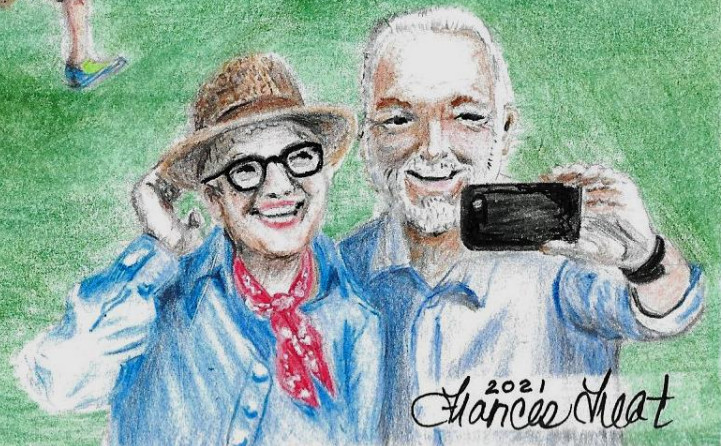 2021
Frances Treat